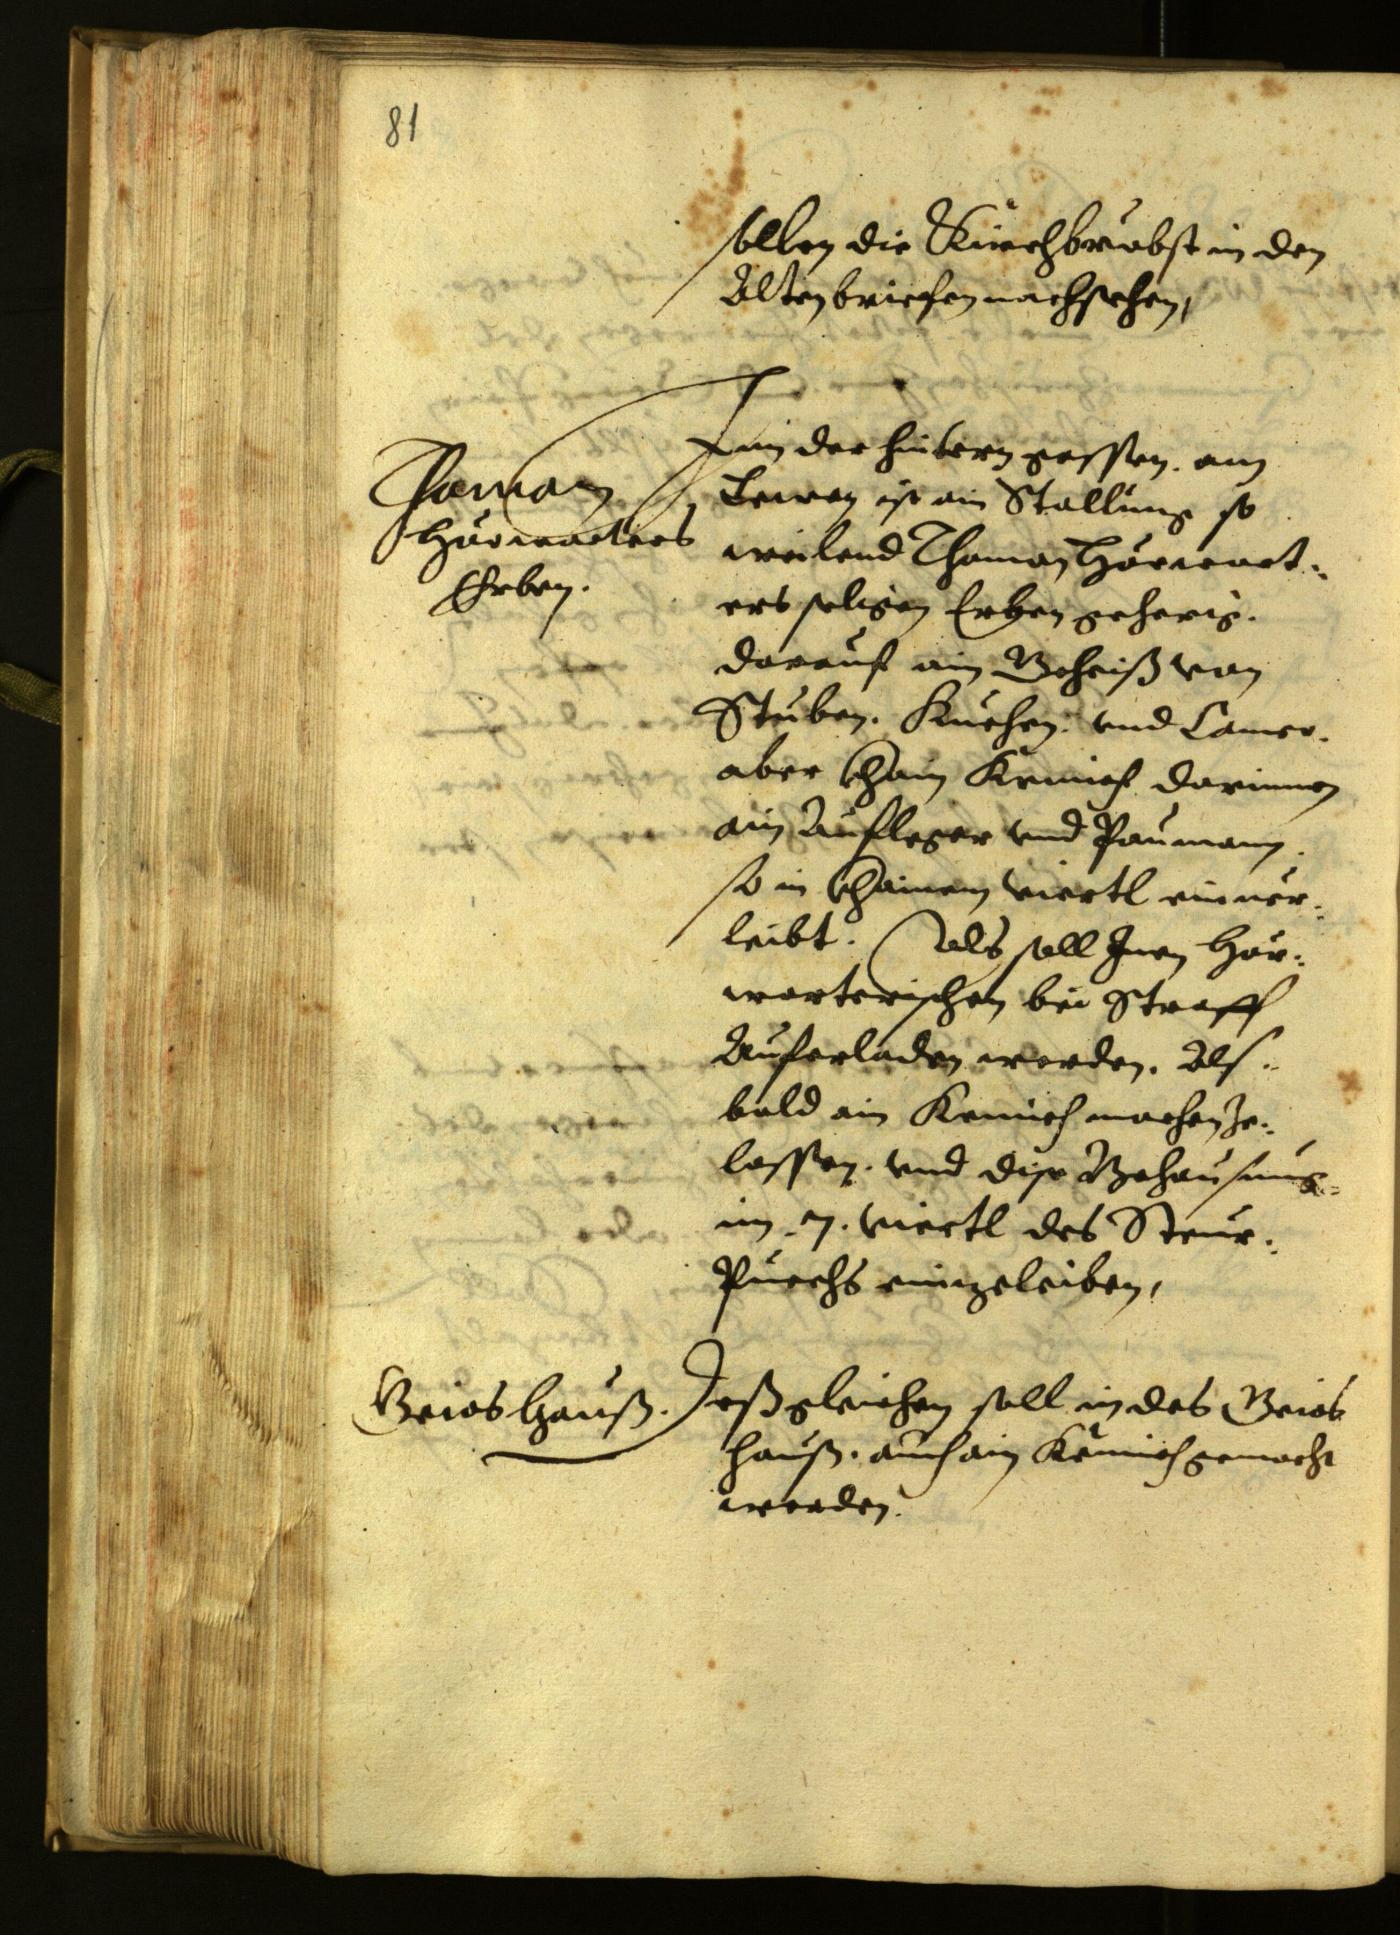 81
sollen die Kürchbrŏbst in den
Alten briefen nachsehen,
Thoman
Hörwarters
Erben.
In der hintern gassen. am
ist ain Stallung so
weilend Thoman Hörwart-
ers seligen Erben geherig.
darauf ain Beheiß von
Stuben. Kuchen. vnd Camer.
aber khain Kemich darinnen
ain Aufleger vnd Paumann.
so in khainem viertl einuer-
leibt. Als soll Inen Hör-
warterischen bei Straff
Auferladen werden. Als-
bald ain Kemich machen ze-
lassen. vnd dise Behausung
im .7. viertl des Steur-
Puechs einzeleiben,
Beios hauß.
Deßgleichen soll in des Beios
hauß. auch ain Kemich gemacht
werden.